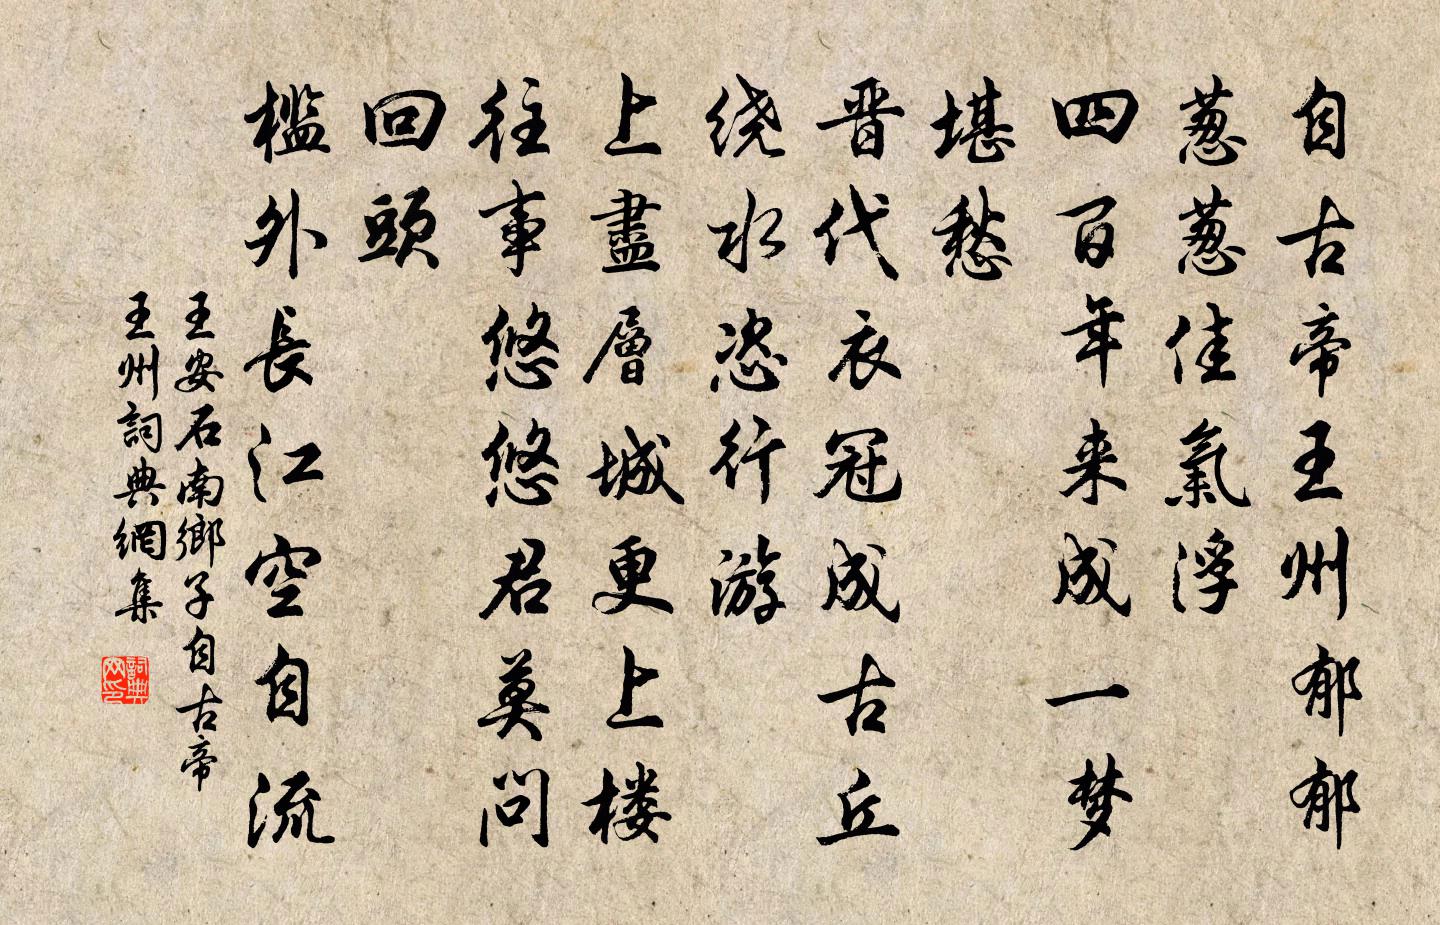 自古帝王州郁郁
葱葱佳氣浮
四百年来成一梦
堪愁
晋代衣冠成古丘
绕水恣行游
上盡層城更上楼
往事悠悠君莫问
回頭
檻外長江空自流
王安石南鄉子自古帝
王州詞典網集
詞典网印